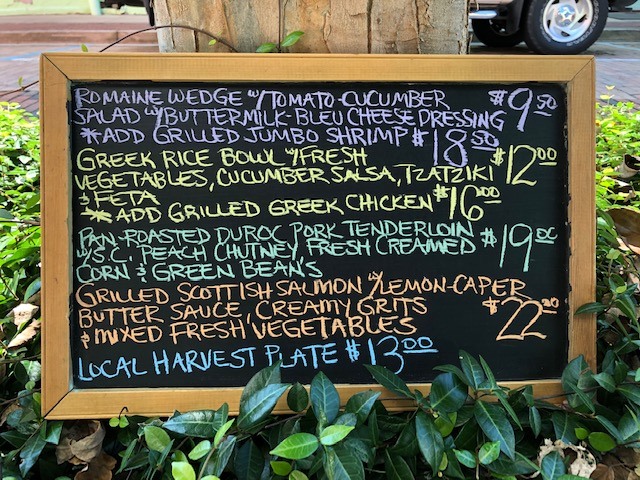 ROMAINE WEDGE W/TOMATO-CUCUMBER
SALAD W/BUTTERMILK-BLEU CHEESE DRESSING $9.50
*ADD GRILLED JUMBO SHRIMP $18.50
GREEK RICE BOWL W/FRESH
VEGETABLES, CUCUMBER SALSA, TZATZIKI $12.00
& FETA
*ADD GRILLED GREEK CHICKEN $16.00
PAN-ROASTED DUROC PORK TENDERLOIN
W/S.C. PEACH CHUTNEY FRESH CREAMED $19.00
CORN & GREEN BEAN'S
GRILLED SCOTTISH SALMON W/LEMON-CAPER
BUTTER SAUCE, CREAMY GRITS $22.00
& MIXED FRESH VEGETABLES
LOCAL HARVEST PLATE $13.00